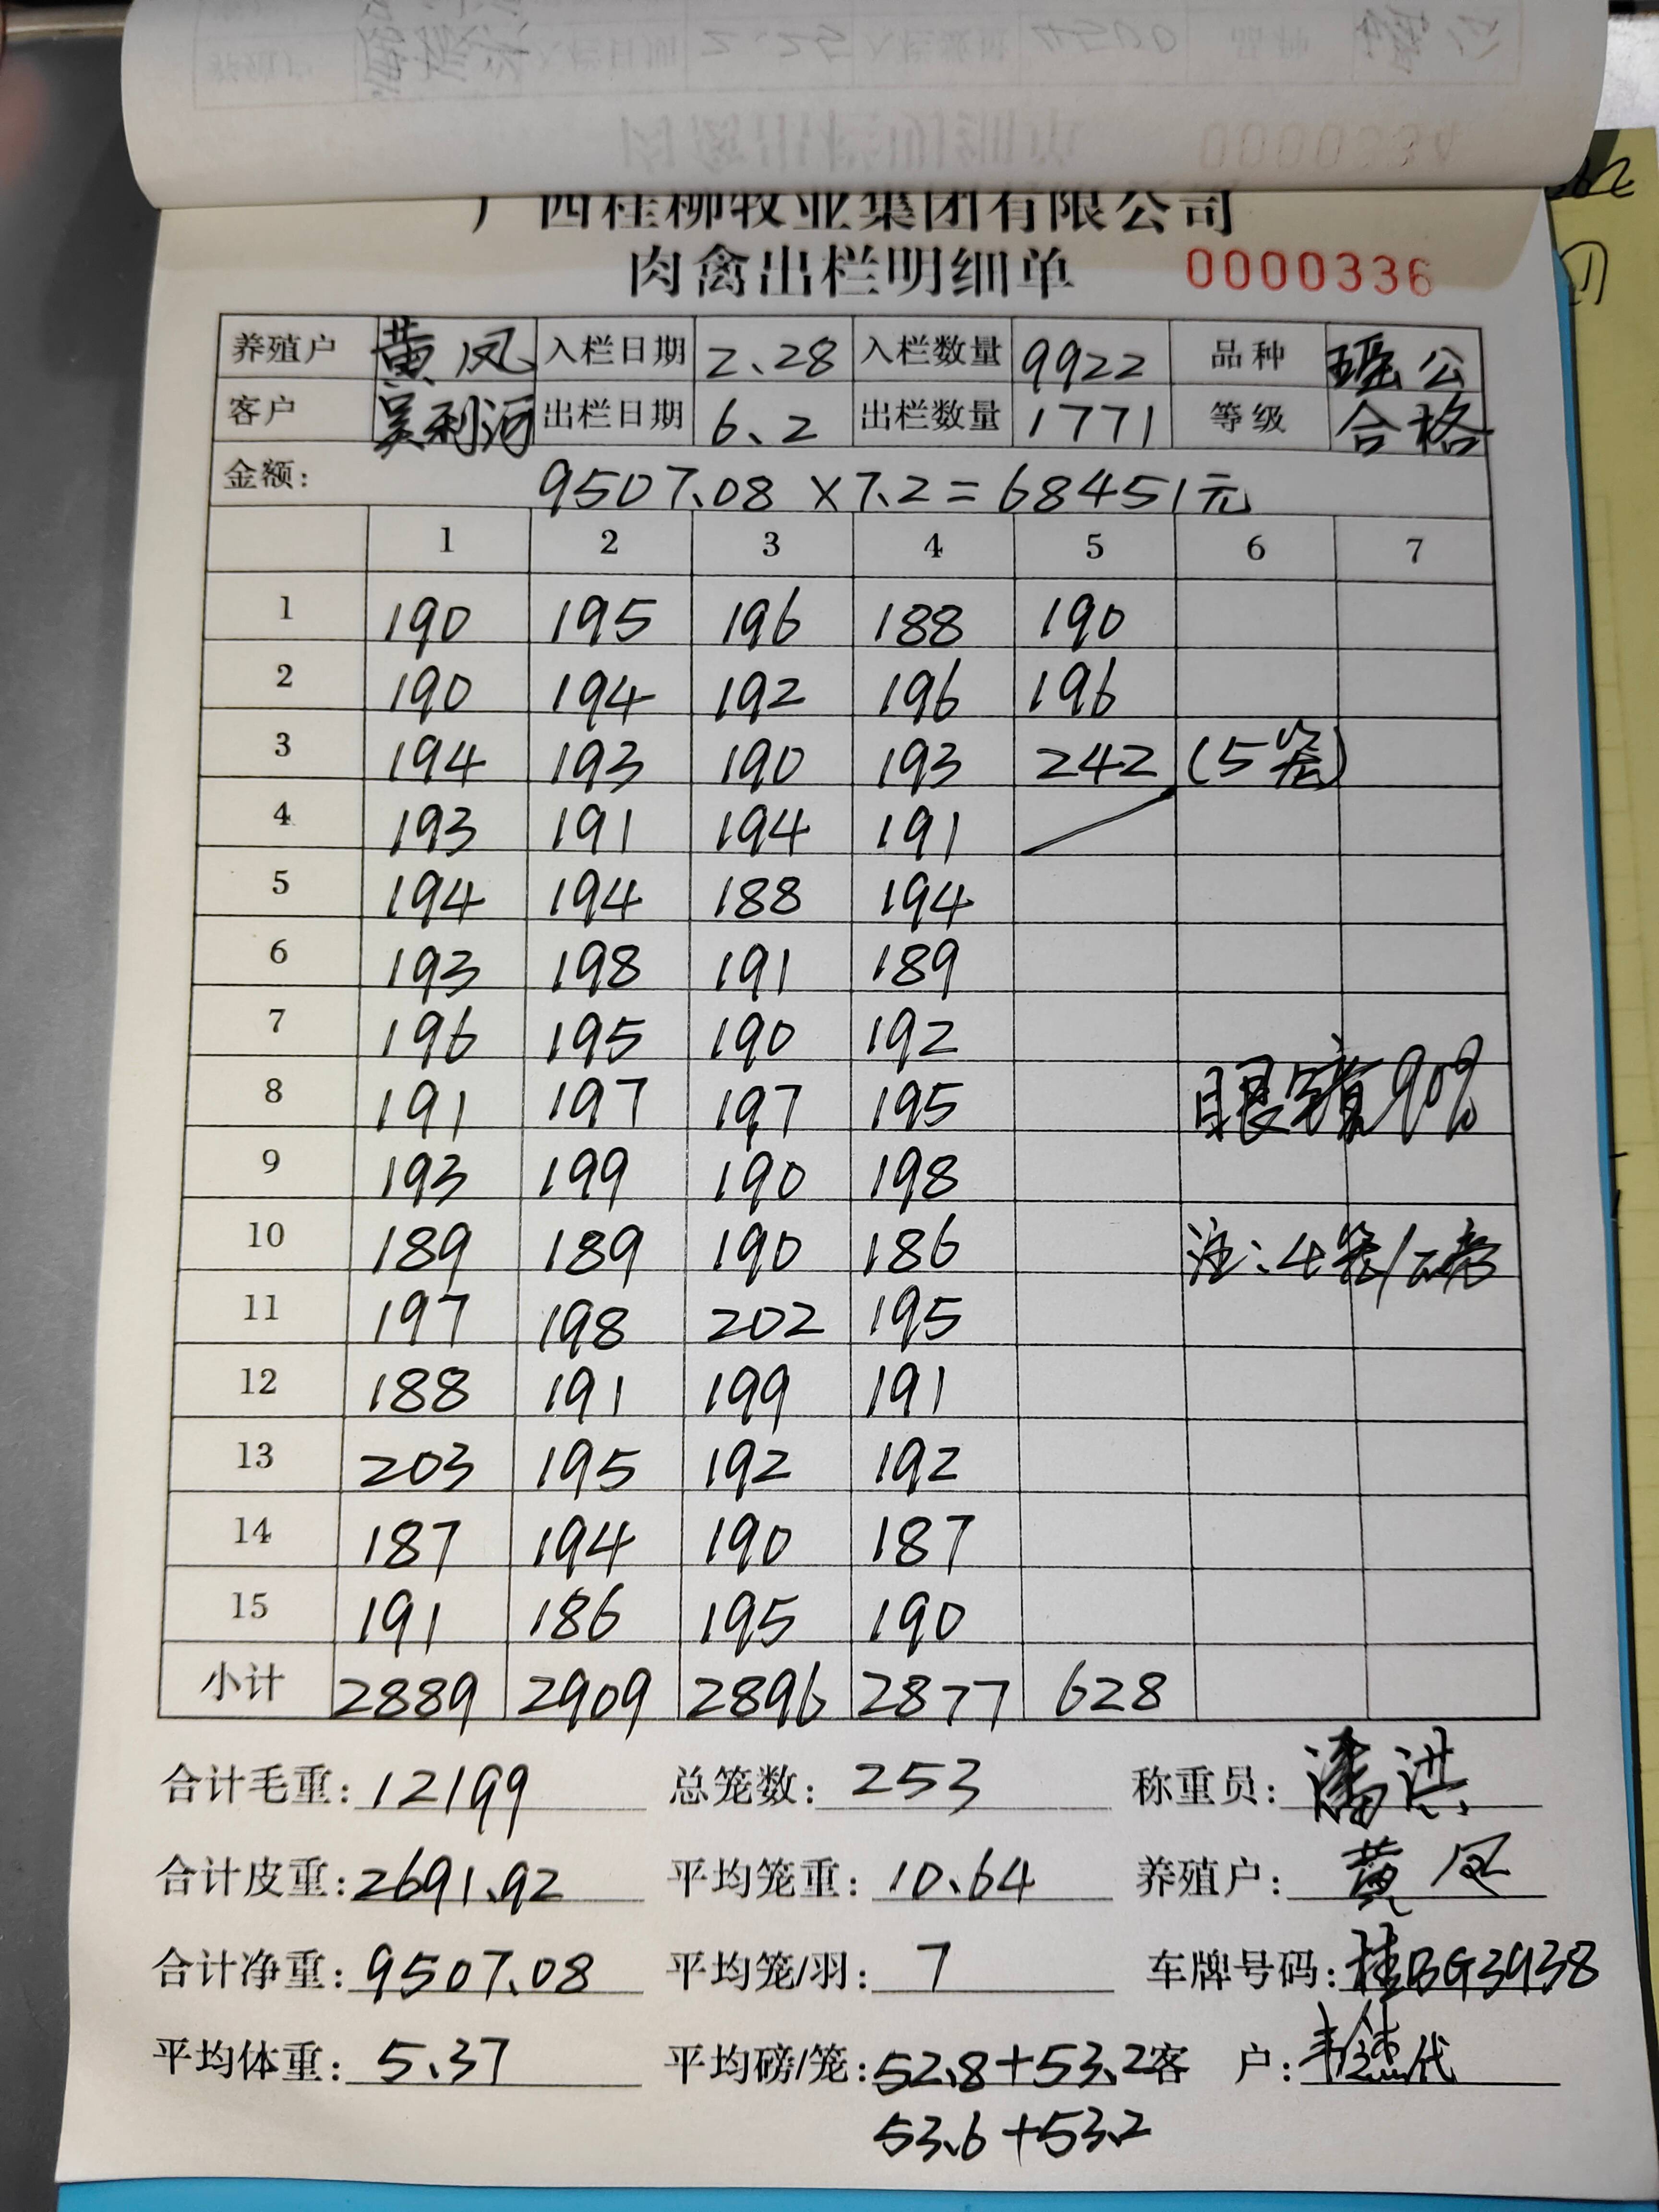 广西桂柳牧业集团有限公司
肉禽出栏明细单 0000336
养殖户 黄凤 入栏日期 2.28 入栏数量 9922 品种 瑶公
客户 吴利河 出栏日期 6.2 出栏数量 1771 等级 合格
金额: 9507.08×7.2=68451元
1 2 3 4 5 6 7
1 190 195 196 188 190
2 190 194 192 196 196
3 194 193 190 193 242 (5笼)
4 193 191 194 191
5 194 194 188 194
6 193 198 191 189
7 196 195 190 192
8 191 197 197 195 眼瞎90%
9 193 199 190 198
10 189 189 190 186 注:4笼/磅
11 197 198 202 195
12 188 191 199 191
13 203 195 192 192
14 187 194 190 187
15 191 186 195 190
小计 2889 2909 2896 2877 628
合计毛重: 12199 总笼数: 253 称重员: 潘洪
合计皮重: 2691.92 平均笼重: 10.64 养殖户: 黄凤
合计净重: 9507.08 平均笼/羽: 7 车牌号码: 桂BG3938
平均体重: 5.37 平均磅/笼: 52.8+53.2 客户: 代
53.6+53.2